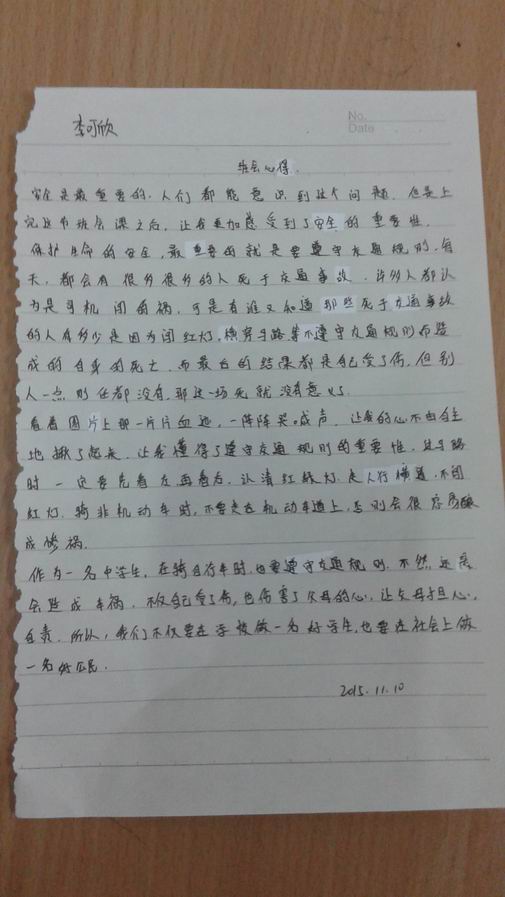 No.
Date
李可欣
班会心得.
安全是最重要的.人们都能意识到这个问题.但是上
完这节班会课之后,让我更加感受到了安全的重要性.
保护生命的安全,最重要的就是要遵守交通规则.每
天,都会有很多很多的人死于交通事故.许多人都认
为是司机闯的祸,可是有谁又知道那些死于交通事故
的人有多少是因为闯红灯.横穿马路等不遵守交通规则而造
成的自身的死亡.而最后的结果.都是自己受了伤,但别
人一点责任都没有,那这一场死就没有意义了.
看着图片上那一片片血迹,一阵阵哭成声,让我的心不由自主
地揪了起来.让我懂得了遵守交通规则的重要性.过马路
时一定要先看左再看右.认清红绿灯.走人行横道.不闯
红灯.骑非机动车时,不要走在机动车道上,否则会很容易酿
成惨祸.
作为一名中学生,在骑自行车时,也要遵守交通规则.不然,还是
会造成车祸.不仅自己受了伤,也伤害了父母的心,让父母担心,
自责.所以,我们不仅要在学校做一名好学生,也要在社会上做
一名好公民.
2015.11.10